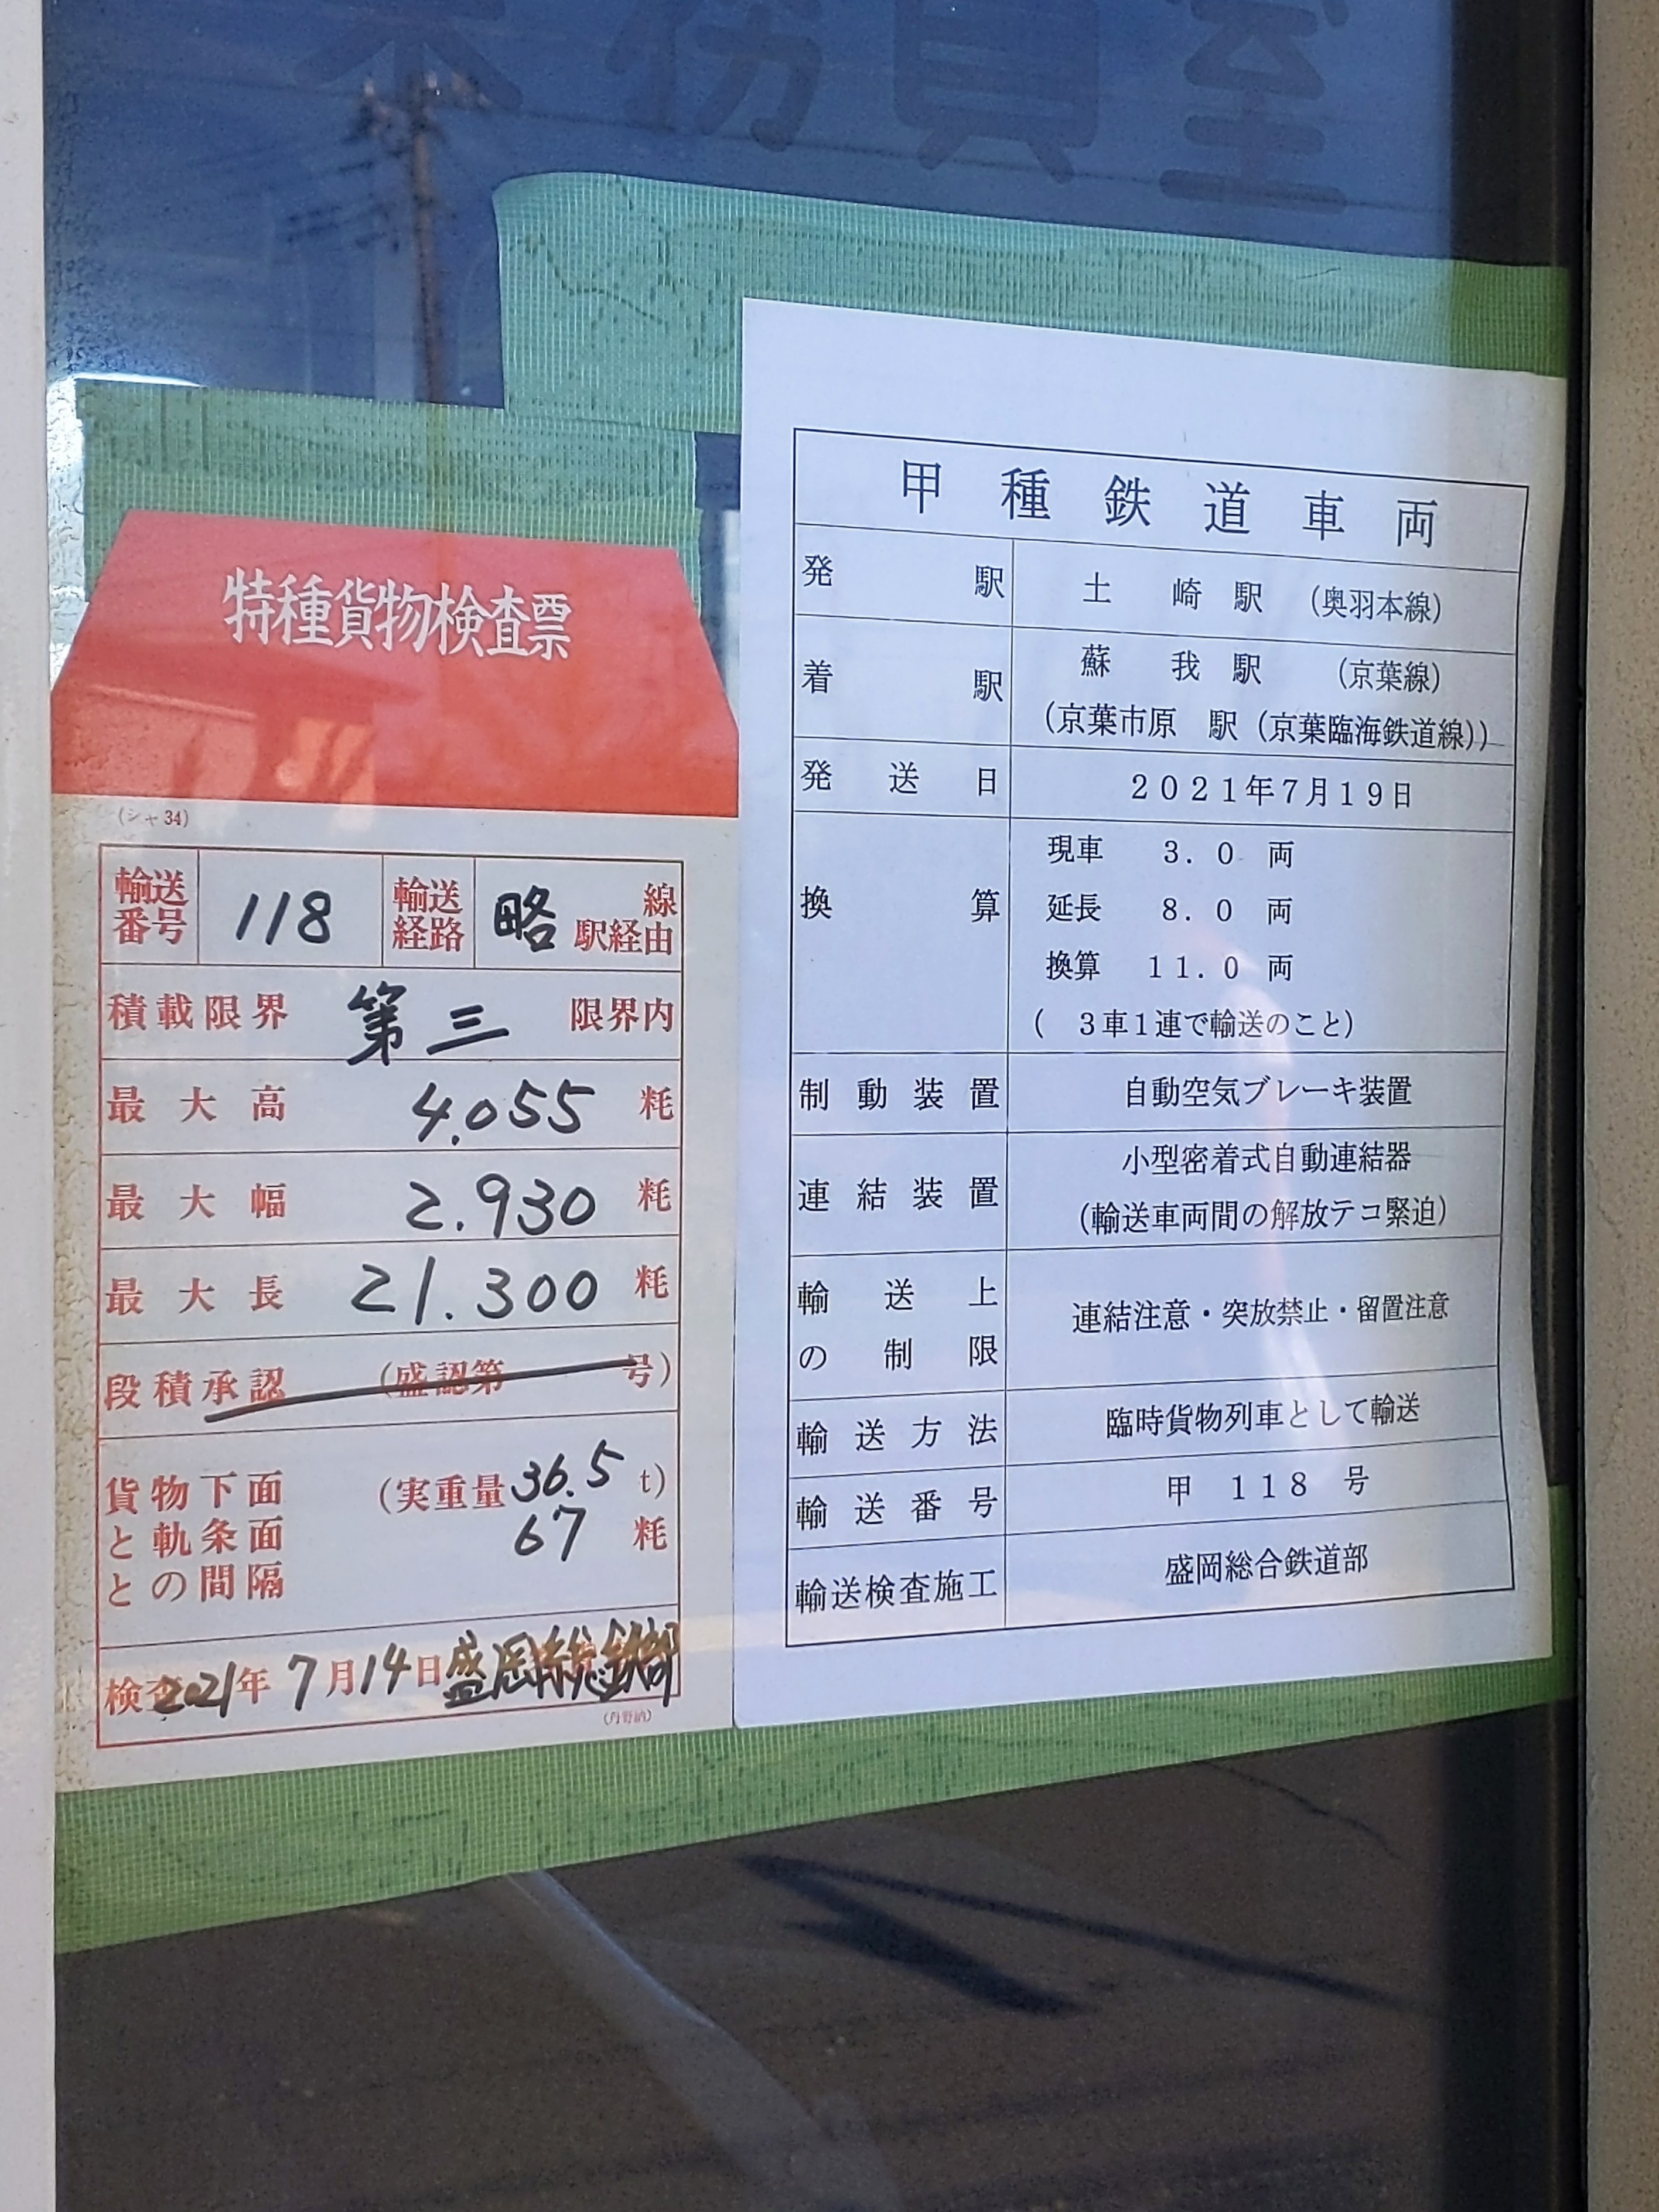 乗務員室
特種貨物検査票
(シャ34)
輸送番号 118 輸送経路 略 線駅経由
積載限界 第三 限界内
最大高 4.055 粍
最大幅 2.930 粍
最大長 21.300 粍
段積承認 (盛認第 号)
貨物下面 (実重量36.5 t)
と軌条面 67 粍
との間隔
検査2021年7月14日 盛岡総鉄部
甲種鉄道車両
発駅 土崎駅 (奥羽本線)
着駅 蘇我駅 (京葉線)
(京葉市原 駅 (京葉臨海鉄道線))
発送日 2021年7月19日
換算 現車 3.0 両
延長 8.0 両
換算 11.0 両
( 3車1連で輸送のこと)
制動装置 自動空気ブレーキ装置
連結装置 小型密着式自動連結器
(輸送車両間の解放テコ緊迫)
輸送上の制限 連結注意・突放禁止・留置注意
輸送方法 臨時貨物列車として輸送
輸送番号 甲 118 号
輸送検査施工 盛岡総合鉄道部